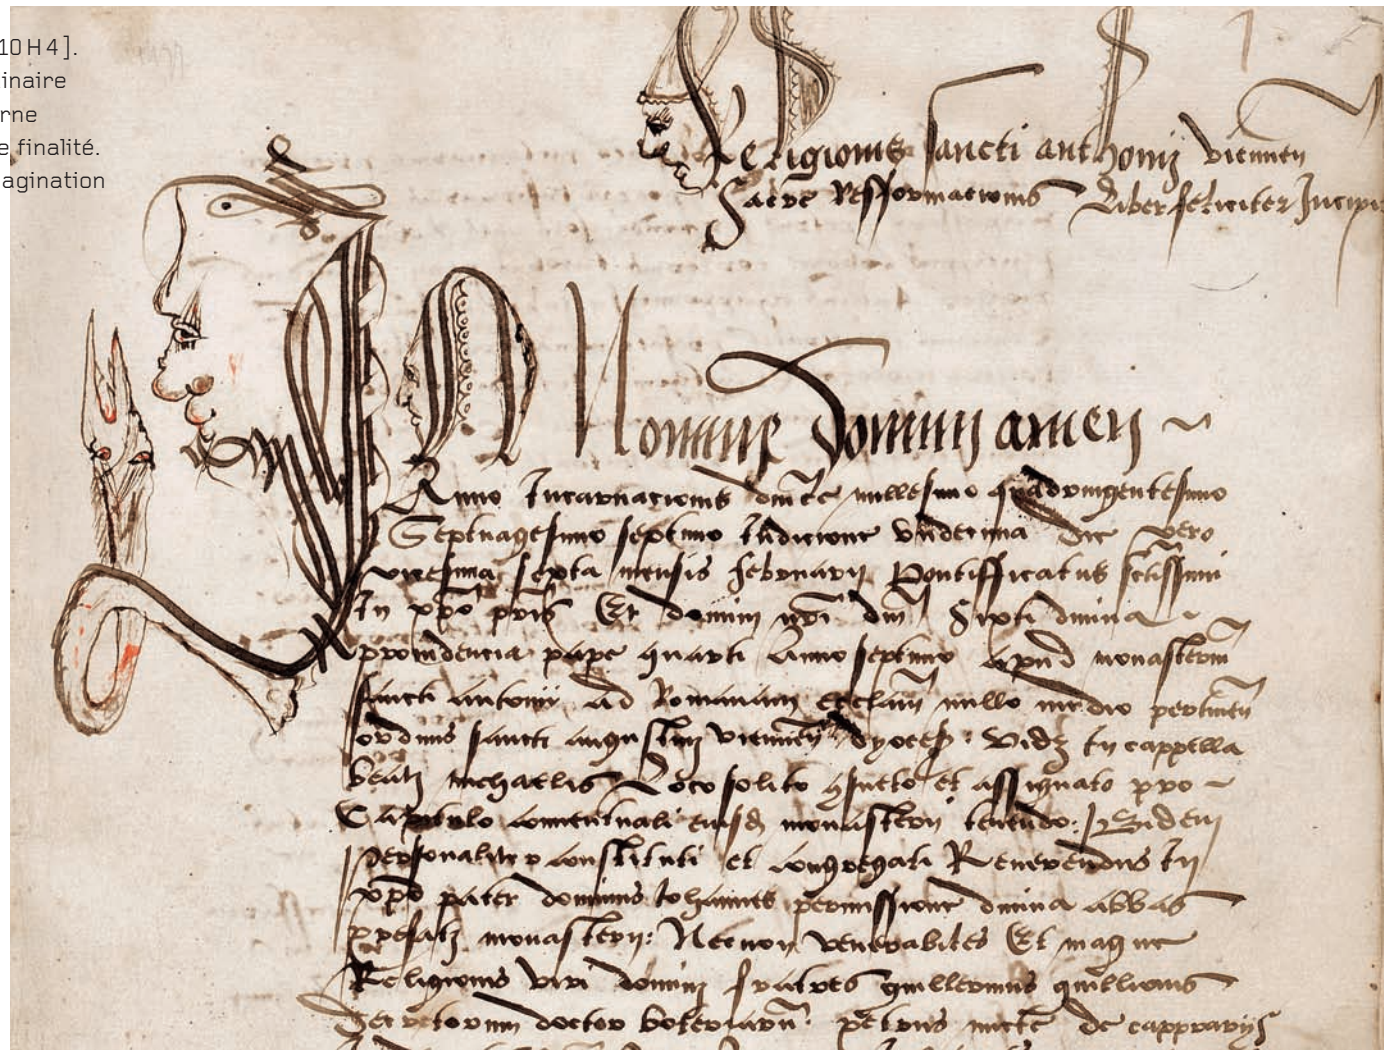 10 H 4].
inaire
rne
e finalité.
agination
Religionis sancti anthonij viennen
Sacre Refformacionis Liber feliciter Incipi
In Nomine domini amen
Anno Incarnacionis millesimo quadringentesimo
Septuagesimo septimo Indicione undecima die vero
vicesima sexta mensis februarii Pontifficatus sctissimi
In xpo pris Et domini nri dni Sixti divina
providencia pape quarti Anno septimo apud monasterm
sancti antonij ad Romanam ecclam nullo medio pertinen
ordinis sancti augustini viennen dyoces: Vidz In cappella
beati michaelis Loco solito et assignato pro
Capitulo conventuali eiusd monasterij tenendo: Ibidem
personaliter constituti et congregati Reverendus In
xpo pater dominus Iohannes permissione divina abbas
prefati monasterij: Necnon venerabiles Et magne
Religionis viri domini fratres guillermus
Decretorum doctor petrus de